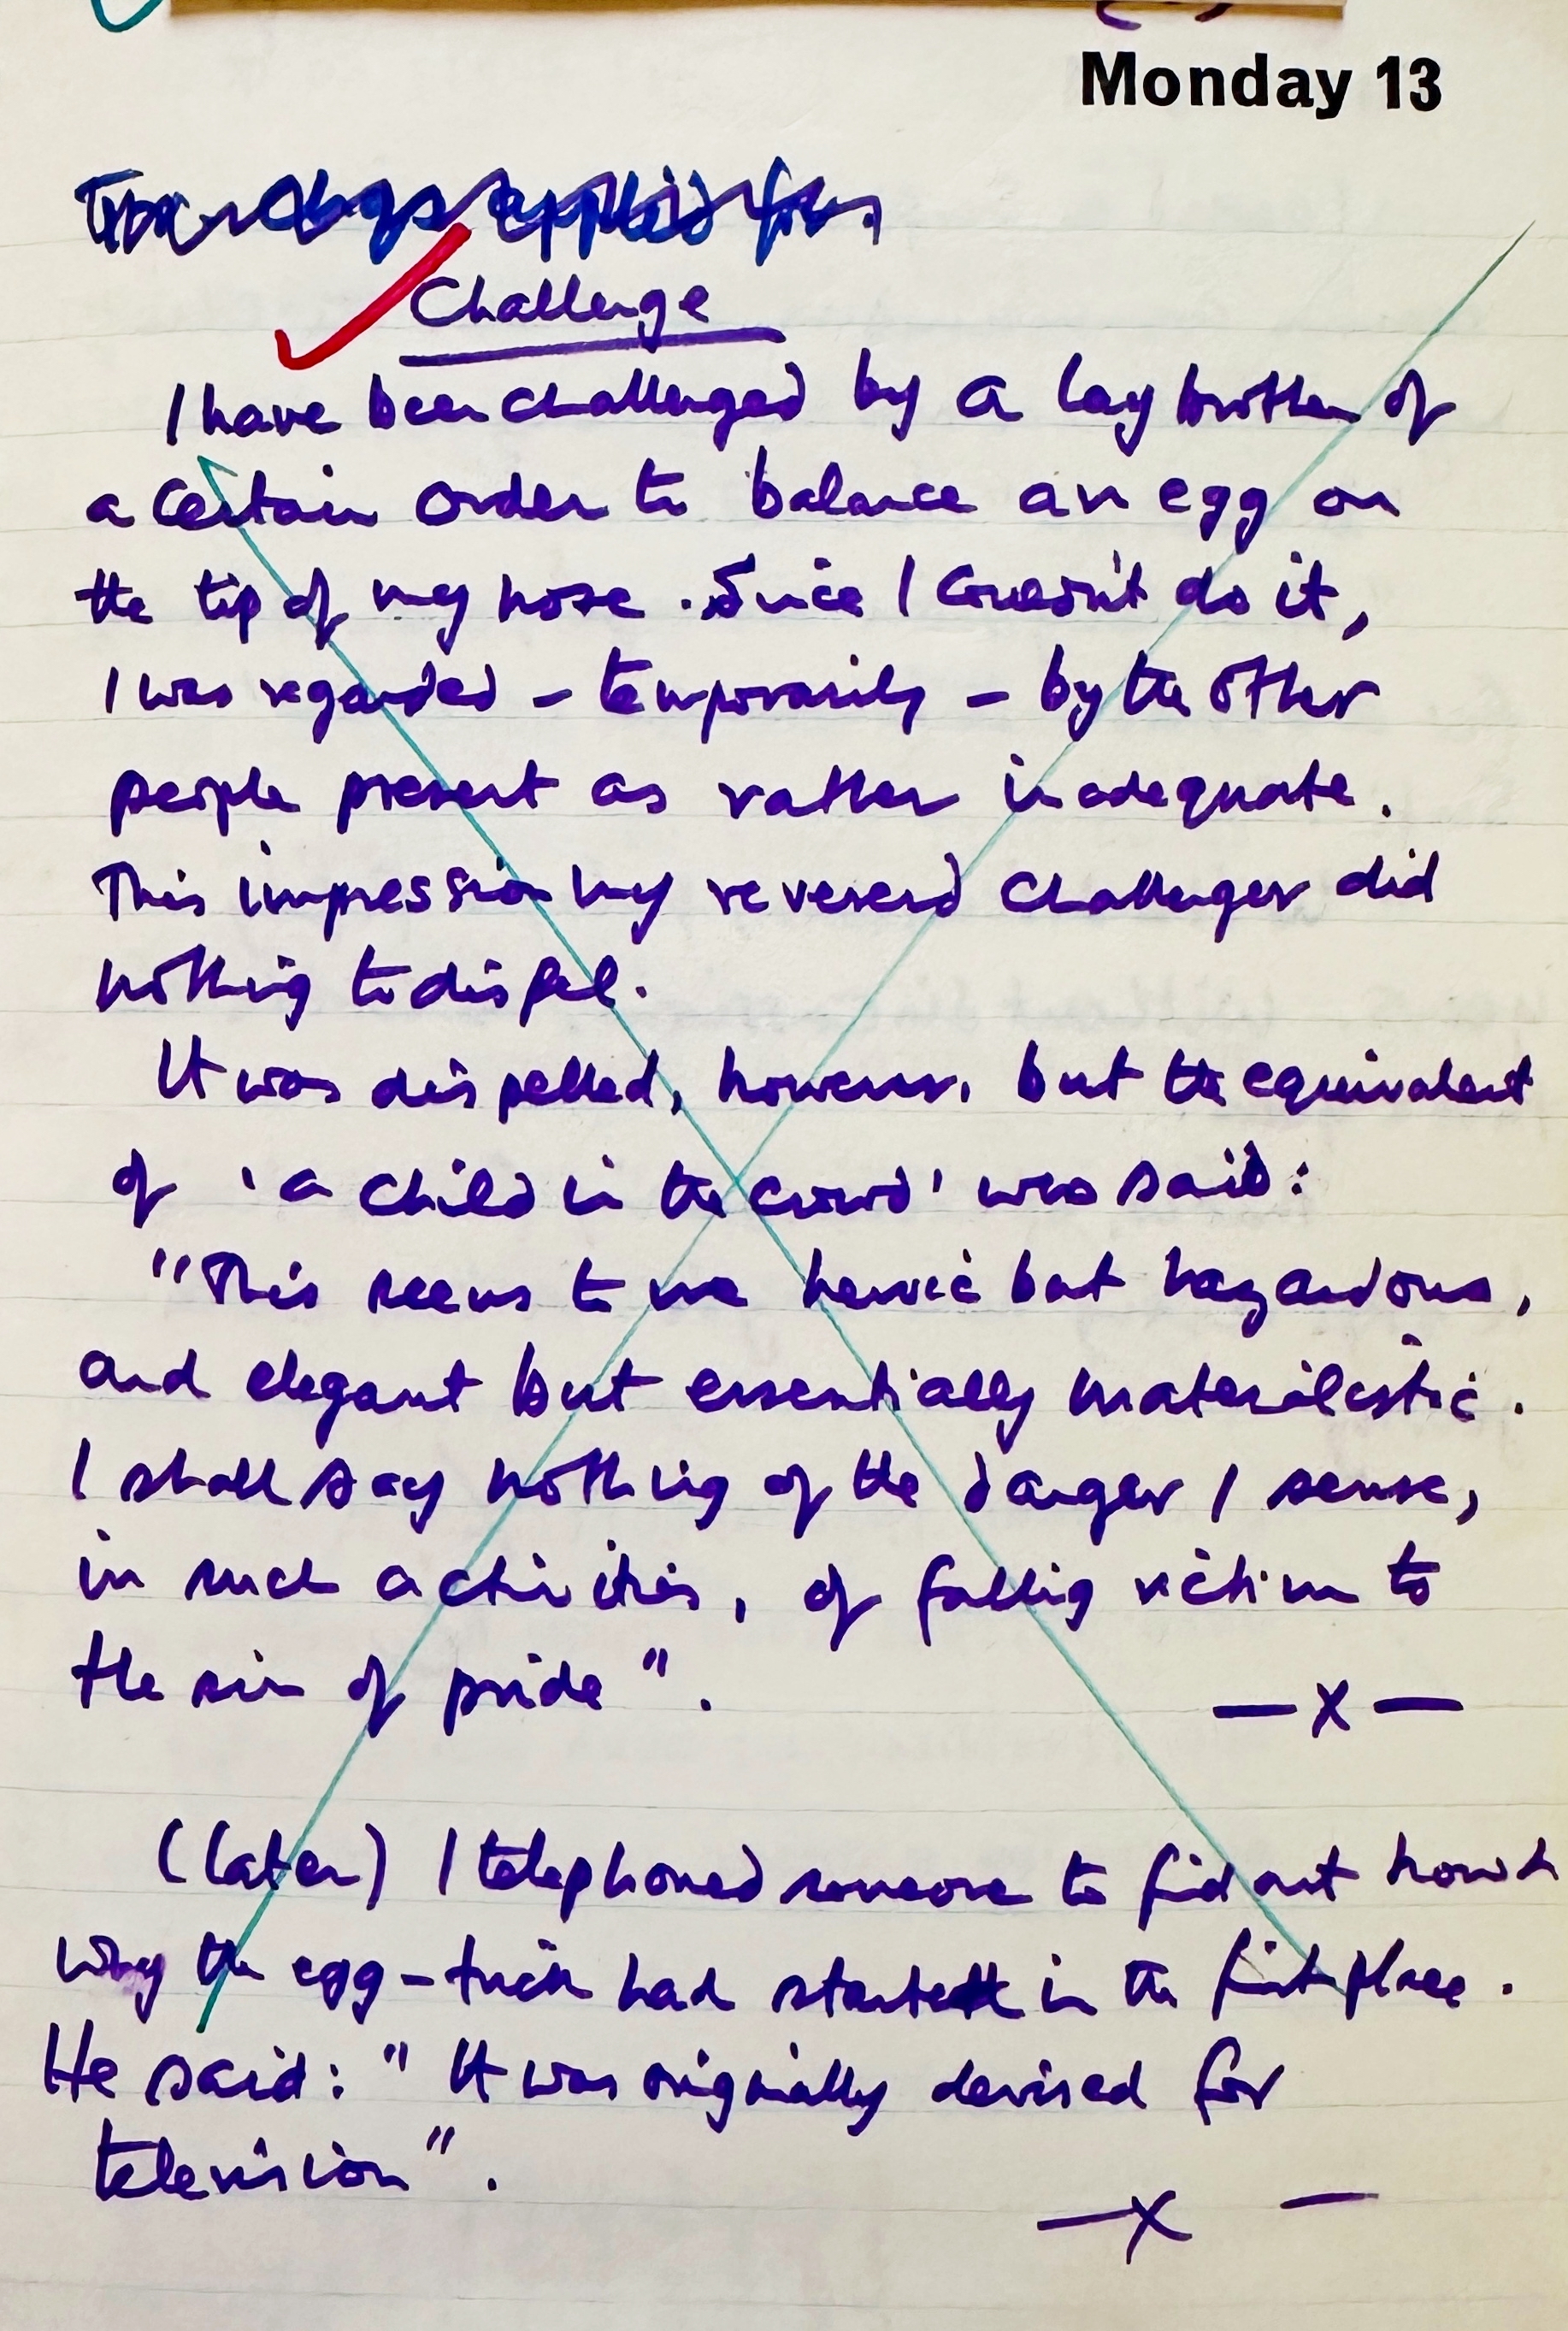 Monday 13
Challenge
I have been challenged by a lay brother of
a certain order to balance an egg on
the tip of my nose. Since I couldn't do it,
I was regarded – temporarily – by the other
people present as rather inadequate.
This impression my reverend challenger did
nothing to dispel.
It was dispelled, however, but the equivalent
of 'a child in the crowd' who said:
"This seems to me heroic but hazardous,
and elegant but essentially materialistic.
I shall say nothing of the danger I sense,
in such activities, of falling victim to
the sin of pride".
—x—
(later) I telephoned someone to find out
why the egg-trick had started in the first place.
He said: "It was originally devised for
television".
—x —